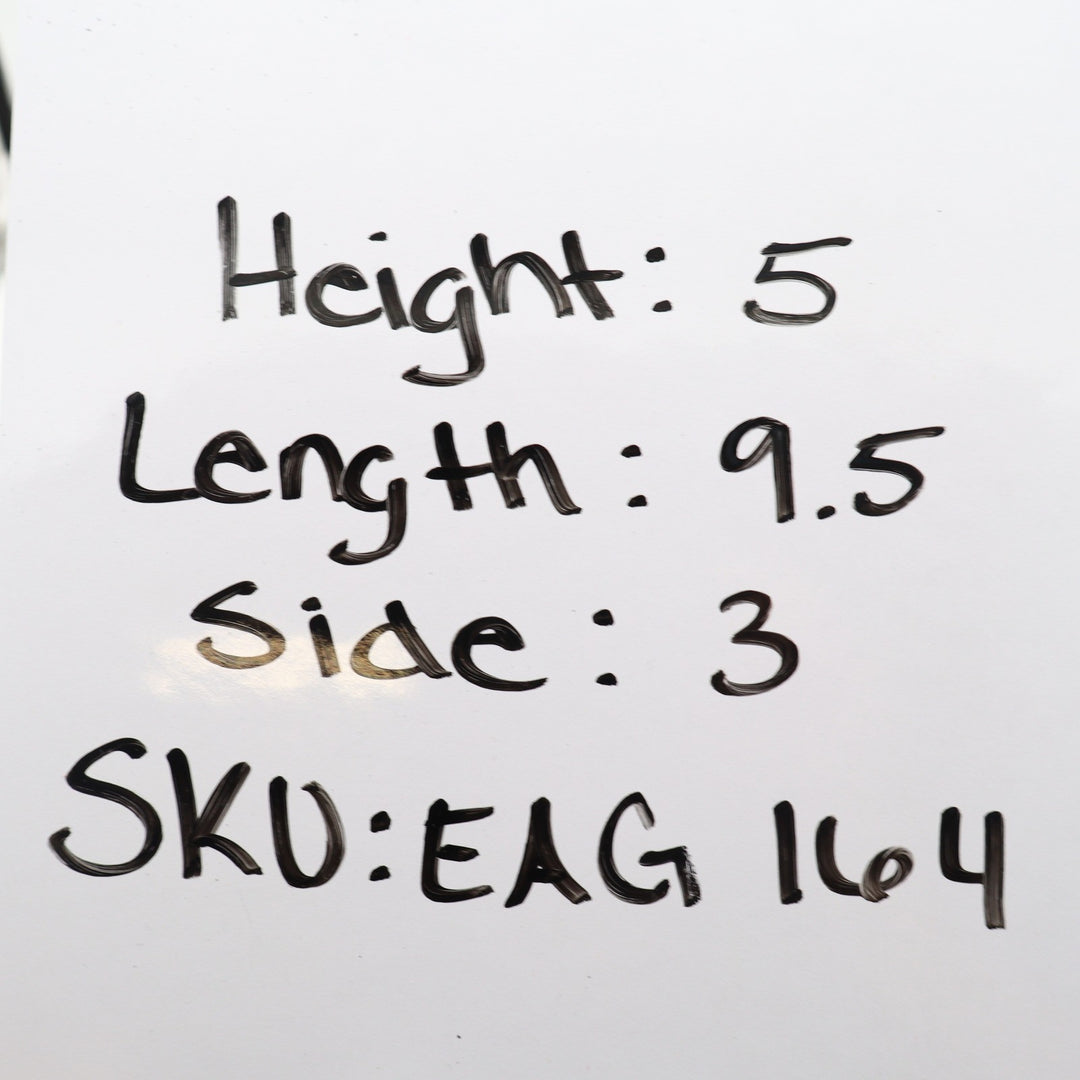 Height: 5
Length: 9.5
Side: 3
SKU: EAG 164